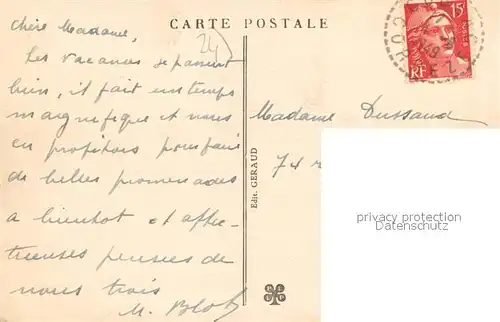 CARTE POSTALE
24
15F
RF
Chère Madame,
Les vacances se passent
bien, il fait un temps
magnifique et nous
en profitons pour faire
de belles promenades
a bientot et affec-
tueuses pensées de
nous trois
M. Blot
Edit. GERAUD
Madame Dussaud
74 r
privacy protection
Datenschutz